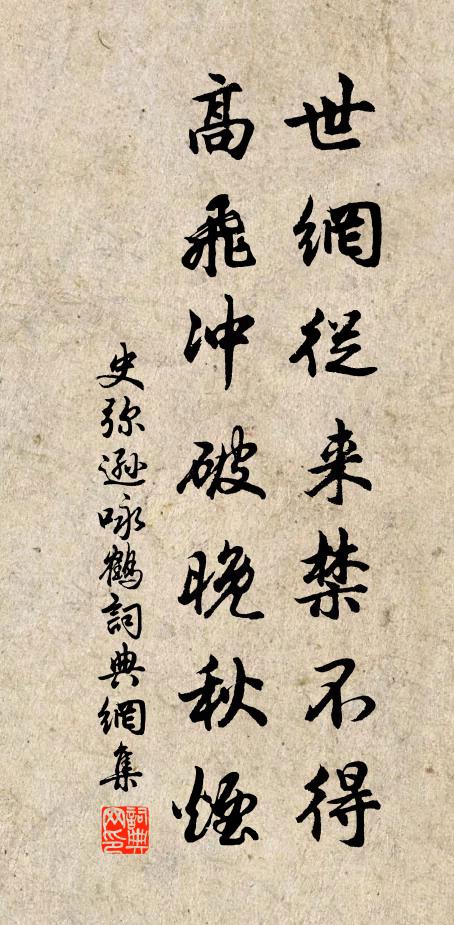 世網從来禁不得
高飛冲破晚秋煙
史弥遜咏鶴詞典網集
詞典網印